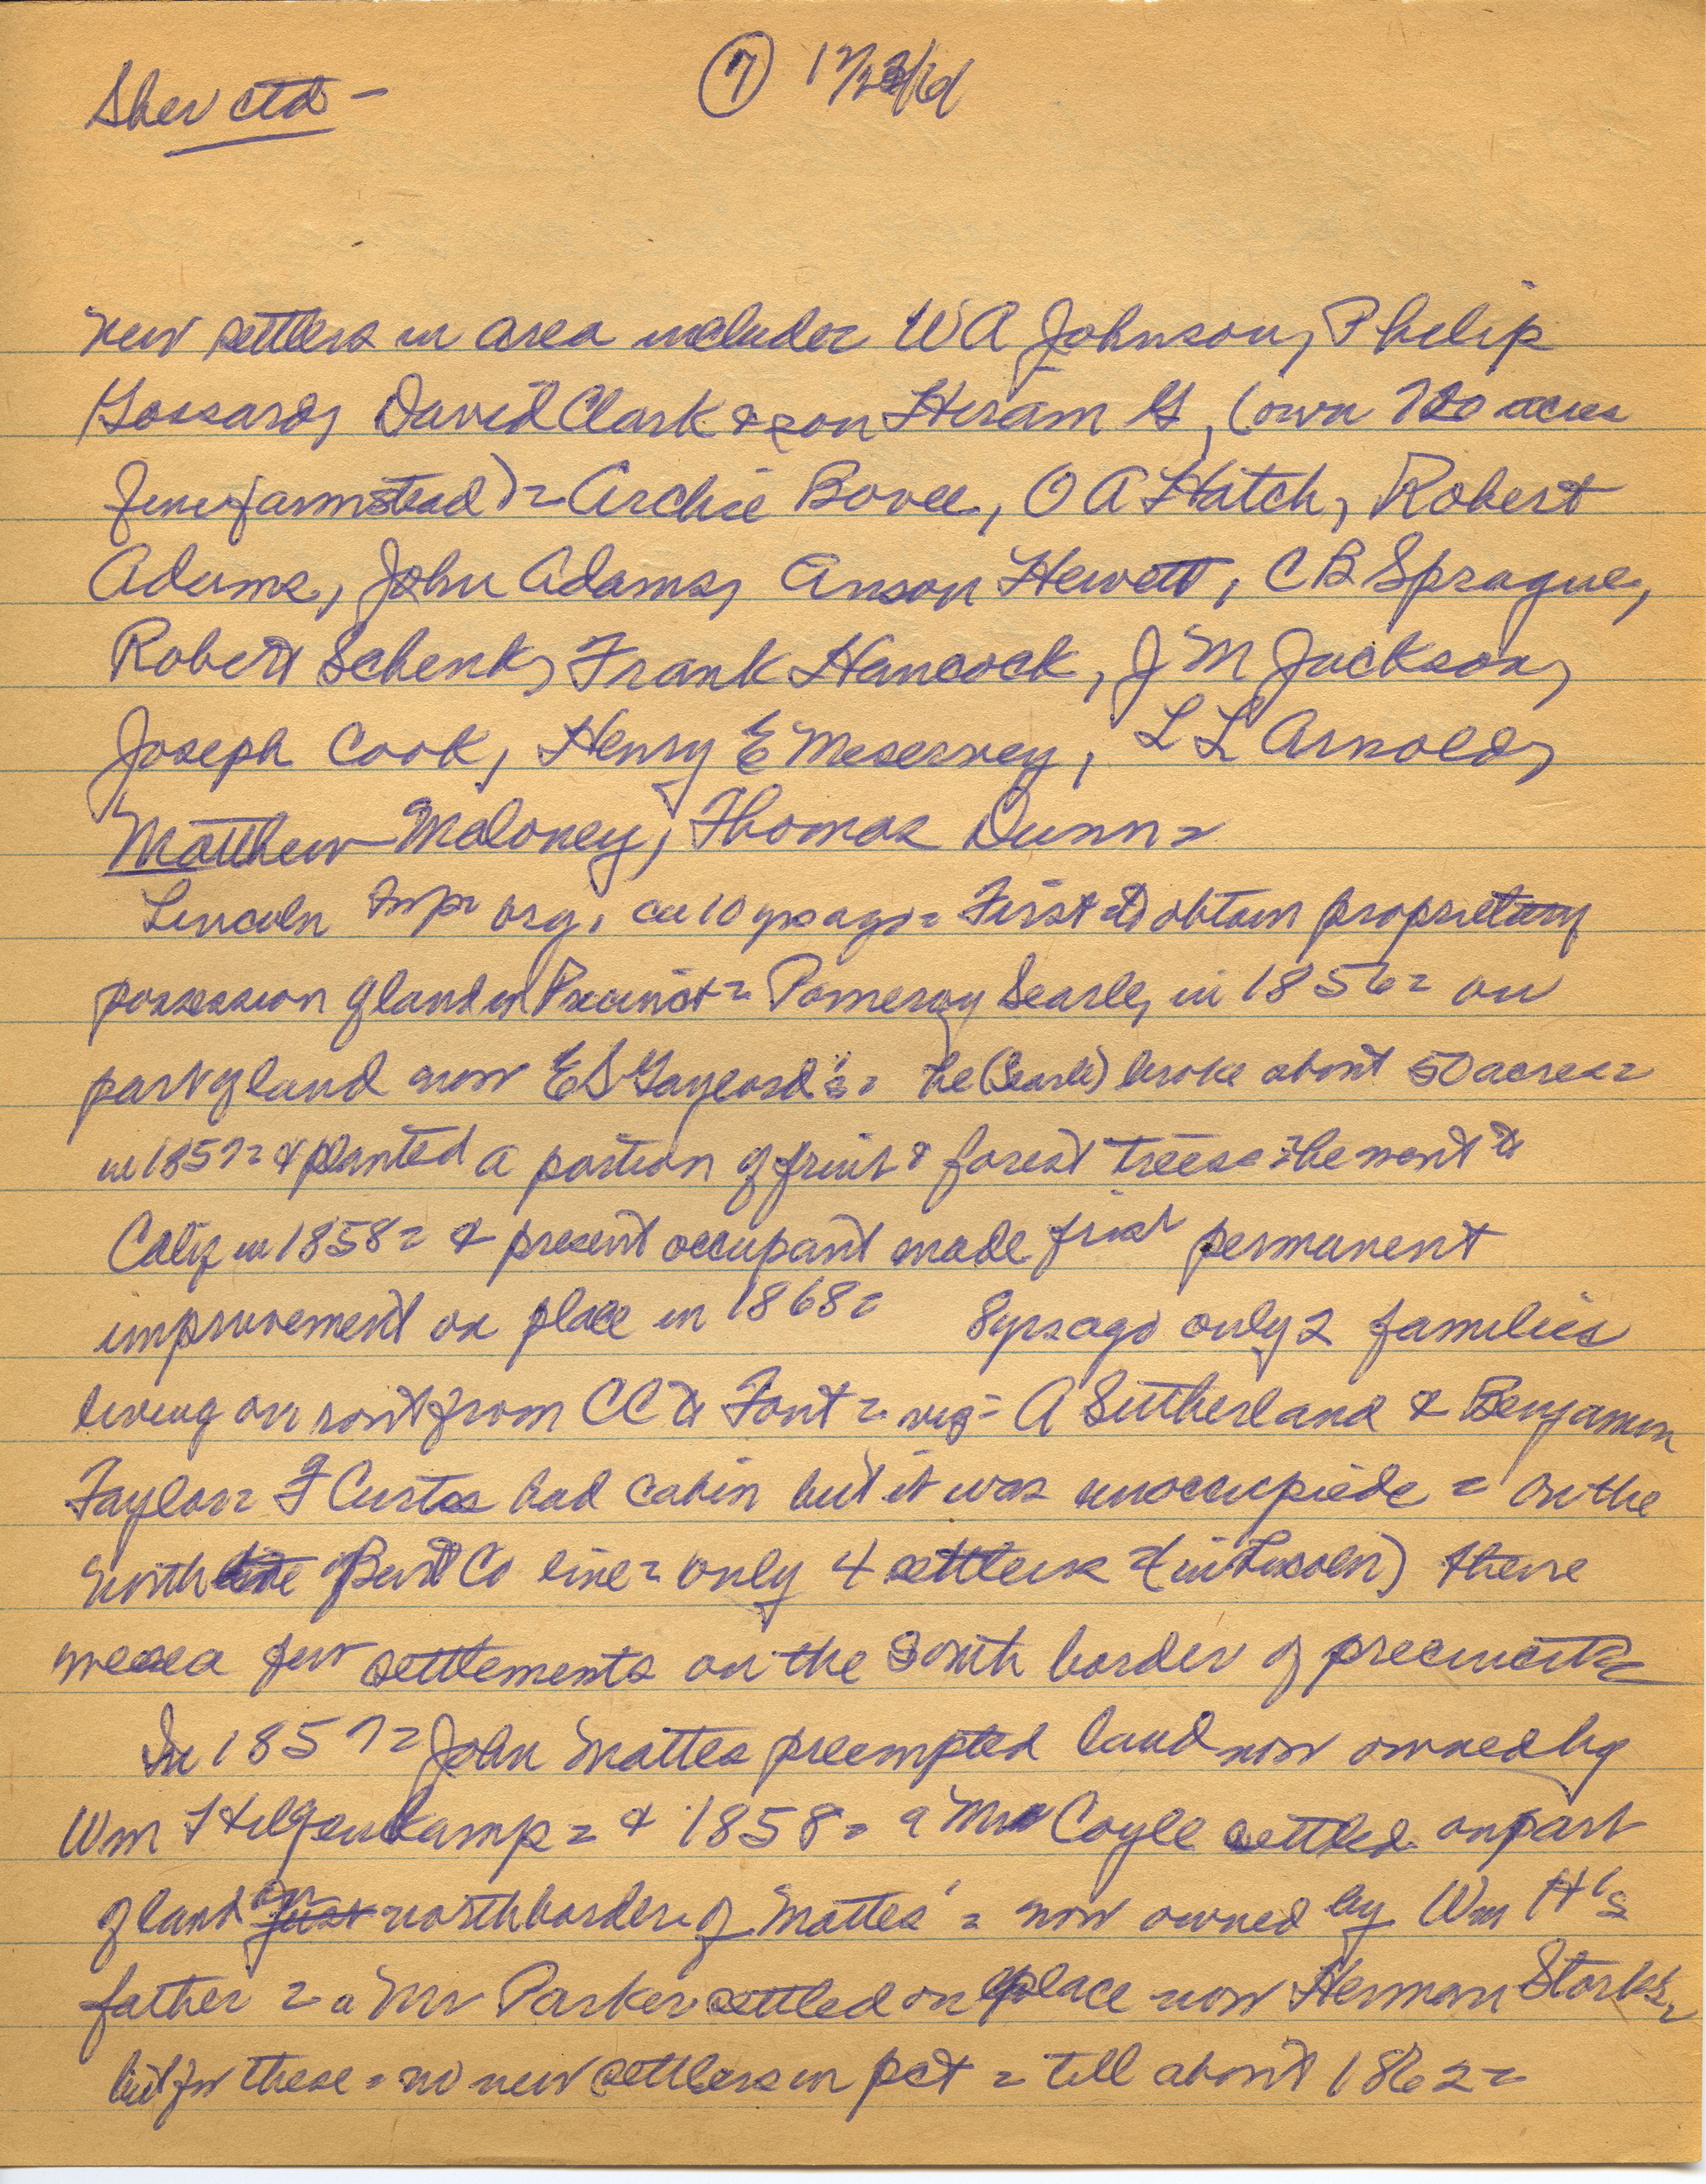 Sher ctd -
7
new settlers in area include = W A Johnson, Philip
Gossard, David Clark & son Hiram G, (own 720 acres
fine farmstead) = Archie Bovee, O A Hatch, Robert
Adams, John Adams, Anson Hewett, C B Sprague,
Robert Schenk, Frank Hancock, J M Jackson,
Joseph Cook, Henry E Meservey, L L Arnold,
Matthew Maloney, Thomas Dunn =
Lincoln Twp = org. ca 10 yrs ago = First to obtain proprietary
possession of land in Precinct = Pomeroy Searle, in 1856 = on
part of land now E S Gaylord's = he (Searle) broke about 50 acres =
in 1857 = & planted a portion of fruit & forest trees = he went to
Calif in 1858 = & present occupant made first permanent
improvement on place in 1868 = 8 yrs ago only 2 families
living on rout from CC to Font = viz = A Sutherland & Benjamin
Taylor = F Curtis had cabin but it was unoccupied = on the
north line of Burt Co line = only 4 settlers = (in Lincoln) there
were a few settlements on the south border of precinct =
In 1857 = John Mattes preempted land now owned by
Wm Hilgenkamp = & 1858 = a Mr Coyle settled on part
of land just on north border of Mattes' = now owned by Wm H's
father = a Mr Parker settled on place now Herman Stork's =
but for these = no new settlers in pct = till about 1862 =